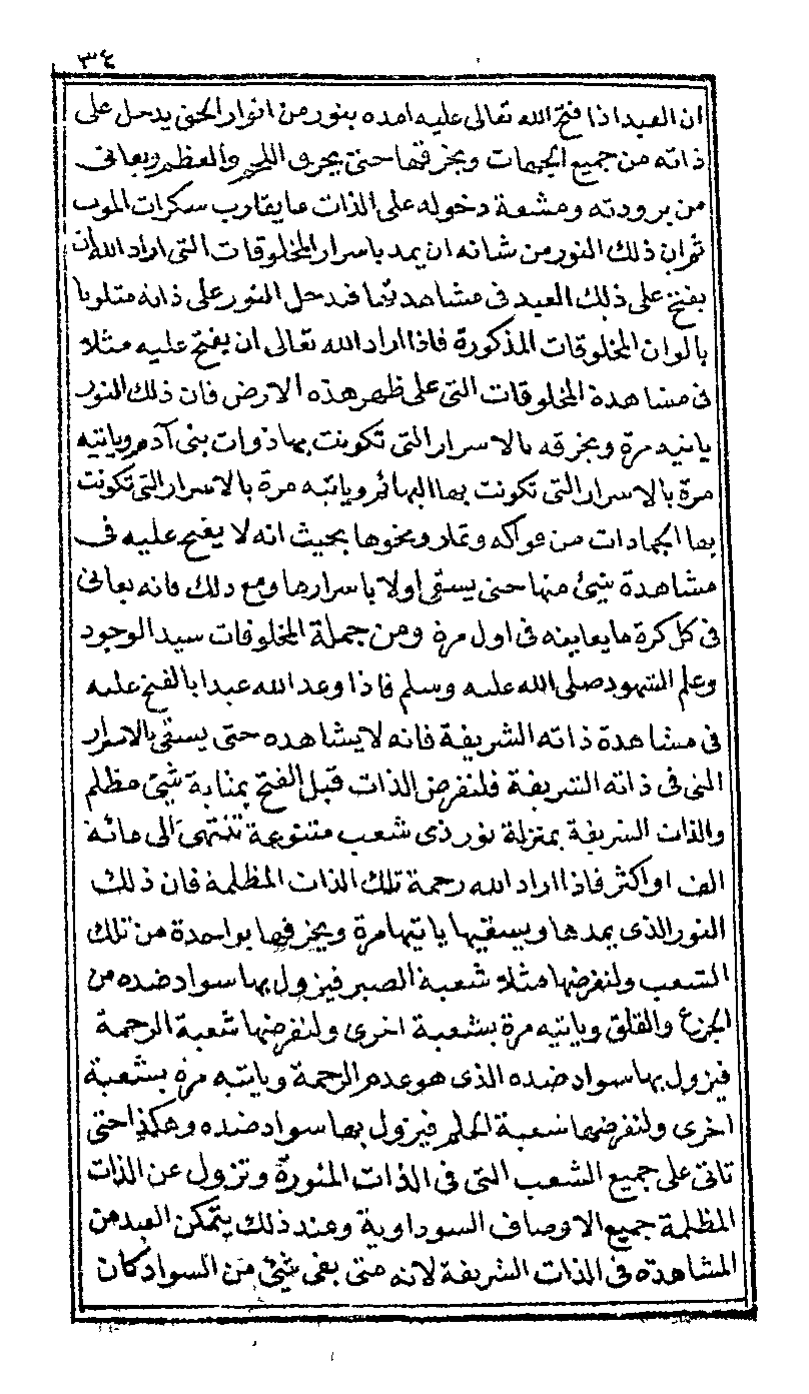 ٣٤
ان العبد اذا فتح الله تعالى عليه امده بنور من انوار الحق يدخل على
ذاته من جميع الجهات ويخرقها حتى يخرق اللحم والعظم ويعانى
من برودته ومشقة دخوله على الذات ما يقارب سكرات الموت
ثم ان ذلك النور من شانه ان يمد باسرار المخلوقات التى اراد الله ان
يفتح على ذلك العبد فى مشاهدتها فيدخل النور على ذاته متلونا
بالوان المخلوقات المذكورة فاذا اراد الله تعالى ان يفتح عليه مثلا
فى مشاهدة المخلوقات التى على ظهر هذه الارض فان ذلك النور
ياتيه مرة ويخرقه بالاسرار التى تكونت بها ذوات بنى آدم وياتيه
مرة بالاسرار التى تكونت بها البهائم وياتيه مرة بالاسرار التى تكونت
بها الجمادات من فواكه وثمار ونحوها بحيث انه لا يفتح عليه فى
مشاهدة شئ منها حتى يسقى اولا باسرارها ومع ذلك فانه يعانى
فى كل كرة ما يعانيه فى اول مرة ومن جملة المخلوقات سيد الوجود
وعلم الشهود صلى الله عليه وسلم فاذا وعد الله عبدا بالفتح عليه
فى مشاهدة ذاته الشريفة فانه لا يشاهده حتى يسقى بالاسرار
التى فى ذاته الشريفة فلنفرض الذات قبل الفتح بمثابة شئ مظلم
والذات الشريفة بمنزلة نور ذى شعب متنوعة تنتهى الى مائة
الف او اكثر فاذا اراد الله رحمة تلك الذات المظلمة فان ذلك
النور الذى يمدها ويسقيها ياتيها مرة ويخرقها بواحدة من تلك
الشعب ولنفرضها مثلا شعبة الصبر فيزول بها سواد ضده من
الجزع والقلق وياتيه مرة بشعبة اخرى ولنفرضها شعبة الرحمة
فيزول بها سواد ضده الذى هو عدم الرحمة وياتيه مرة بشعبة
اخرى ولنفرضها شعبة الحلم فيزول بها سواد ضده وهكذا حتى
تاتى على جميع الشعب التى فى الذات المنورة وتزول عن الذات
المظلمة جميع الاوصاف السوداوية وعند ذلك يتمكن العبد من
المشاهدة فى الذات الشريفة لانه متى بقى شئ من السواد كان